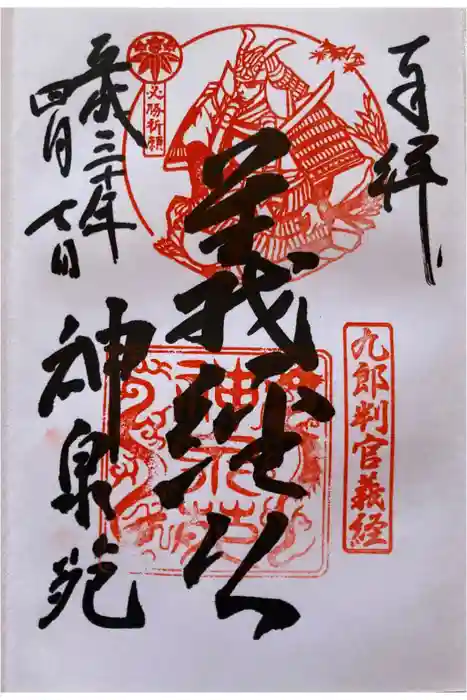 奉拝
九郎判官義経
義経公
必勝祈願
平成三十年
四月七日
神泉苑
神泉苑